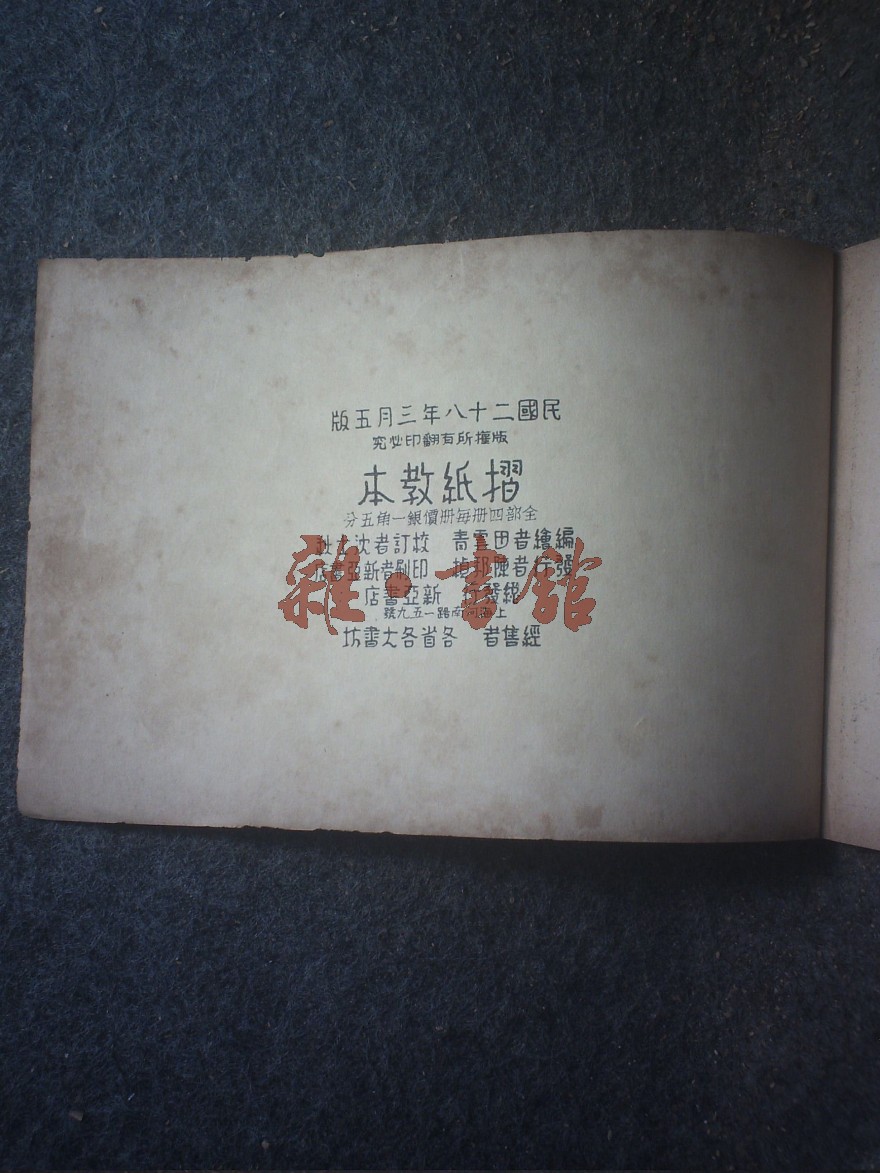 民國二十八年三月五版
版權所有翻印必究
摺紙教本
全部四冊每冊價銀一角五分
編繪者田雲青 校訂者沈
發行者陳邦楨 印刷者新亞書店
總發行 新亞書店
上海河南路一五九號
經售者 各省各大書坊
雜·書館